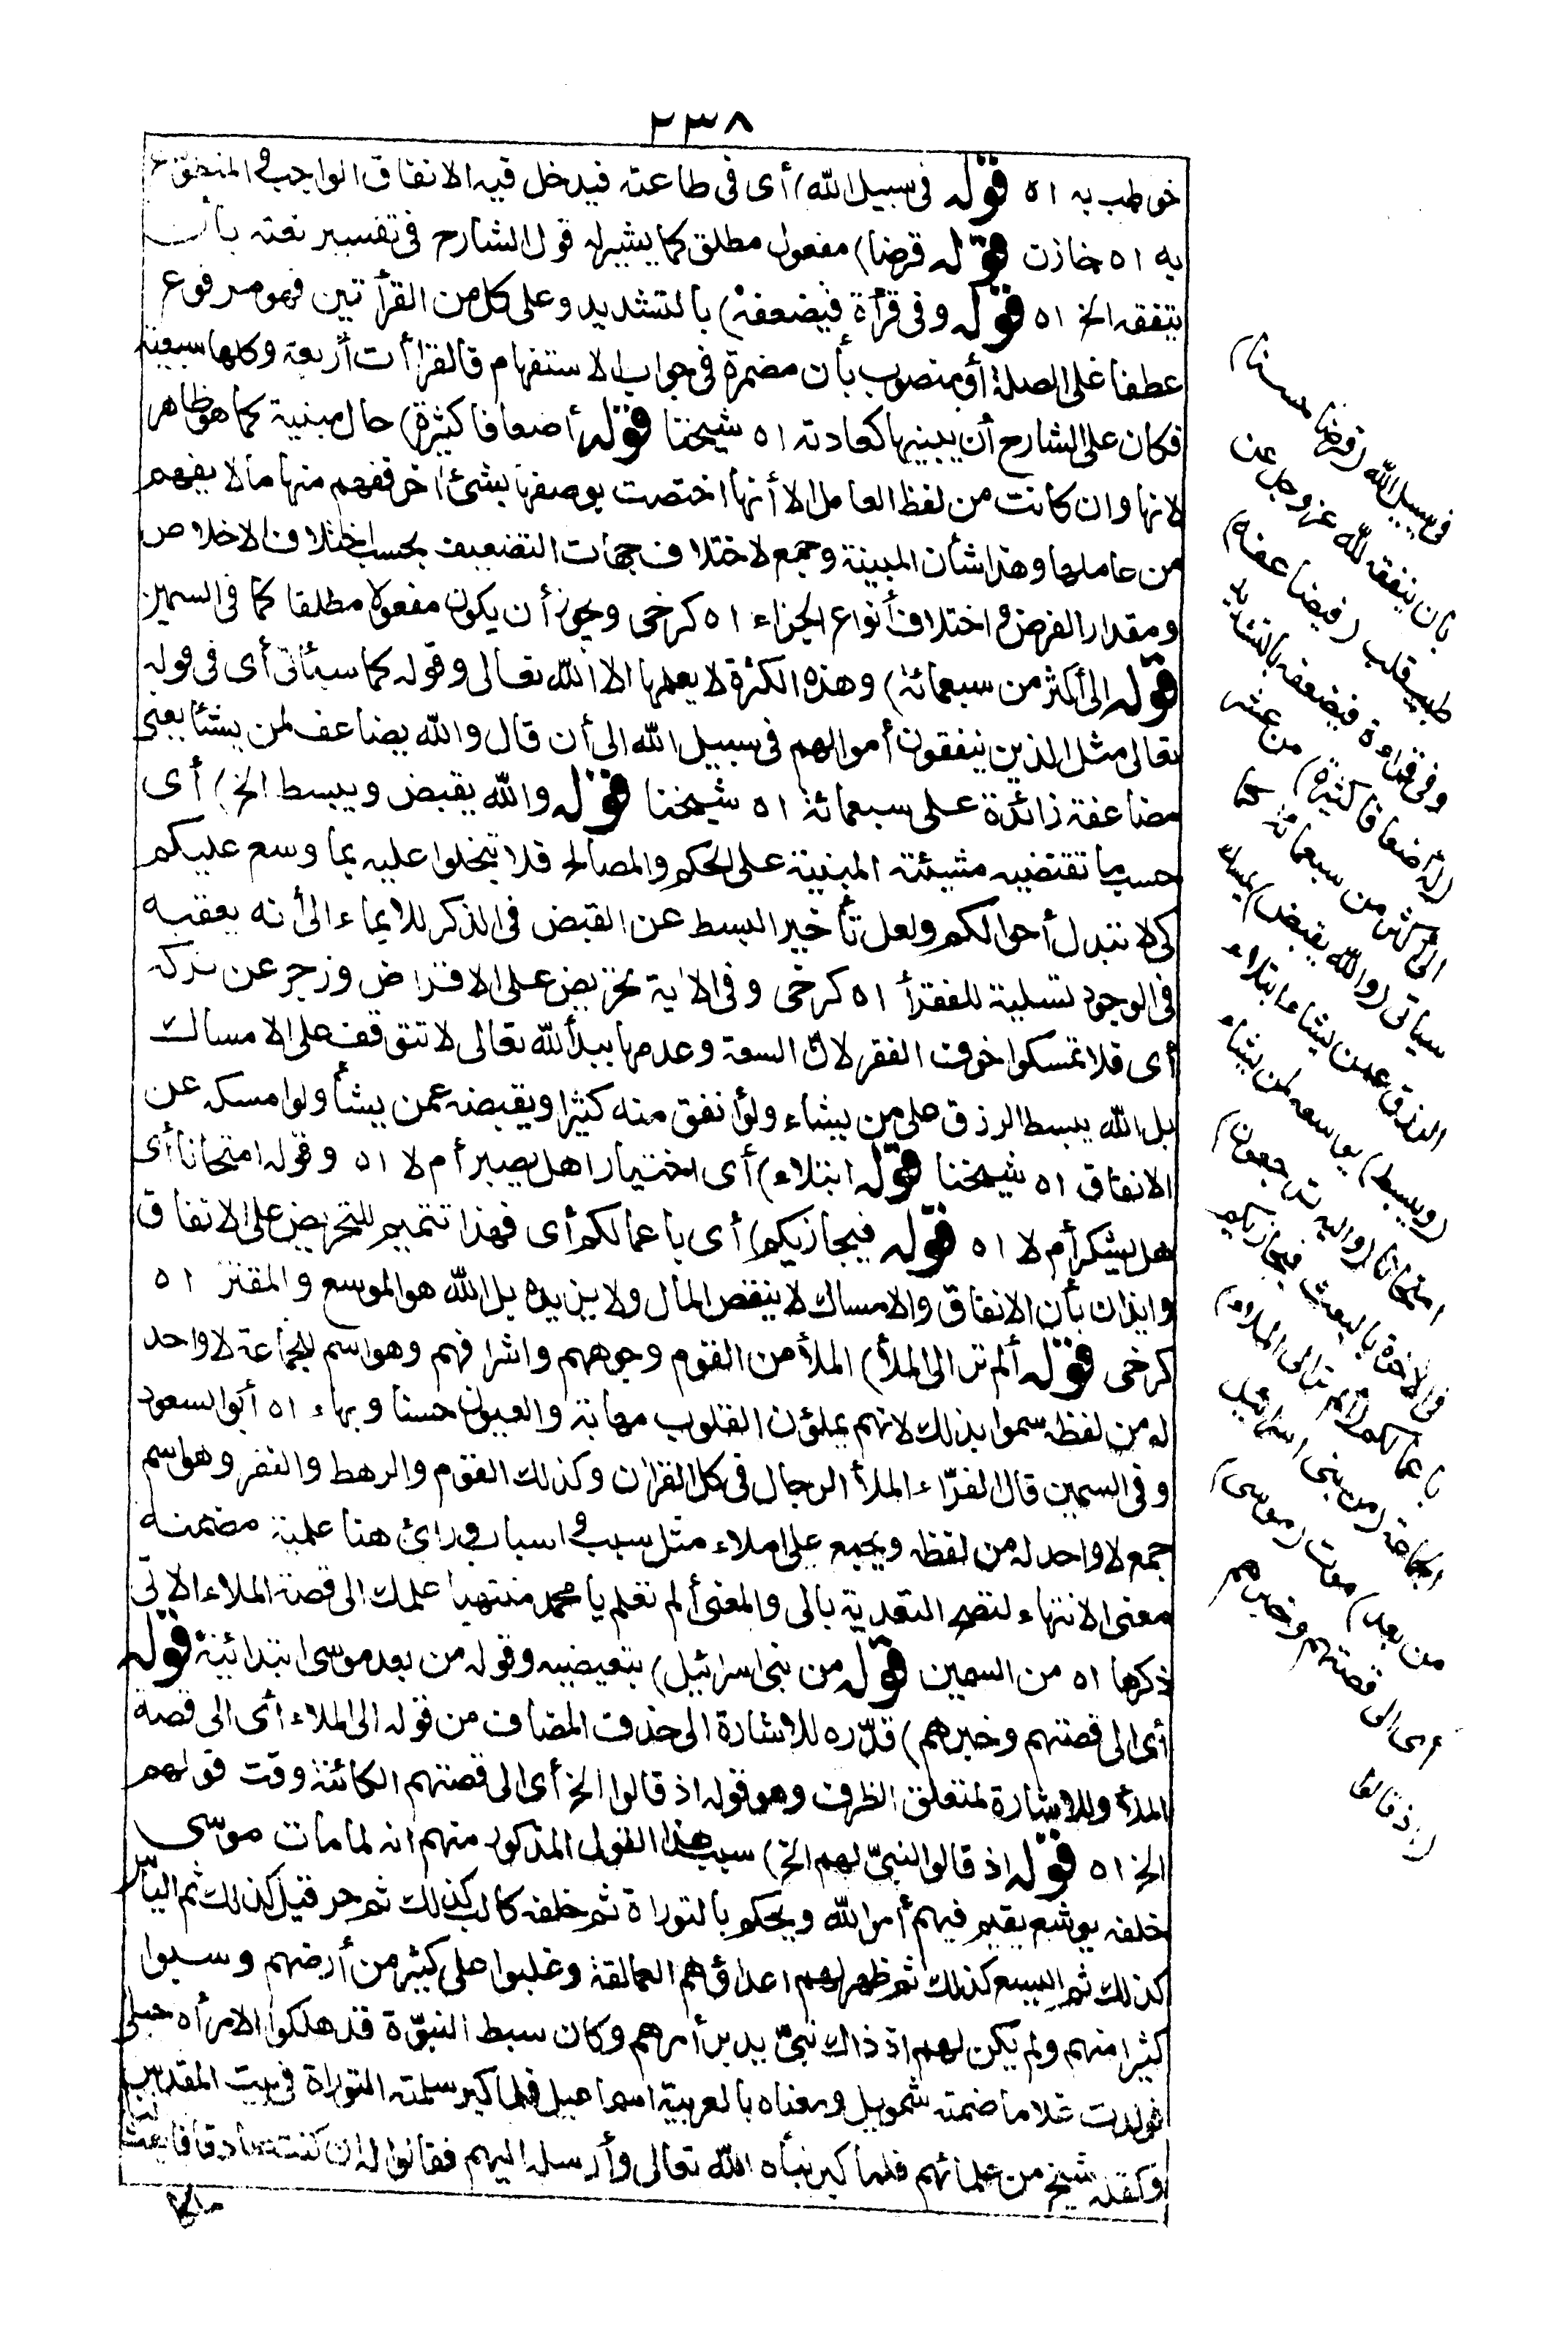 ٢٣٨
خوطب به اه قوله في سبيل الله) أى فى طاعته فيدخل فيه الانفاق الواجب والمتطوّع
به اه خازن قوله قرضا) مفعول مطلق كما يشير له قول الشارح فى تفسير نعته بأن
ينفقه الخ اه قوله وفى قرأة فيضعفه) بالتشديد وعلى كل من القرأتين فهو مرفوع
عطفا على الصلة أو منصوب بأن مضمرة فى جواب الاستفهام فالقرأت أربعة وكلها سبعية
فكان على الشارح أن يبينها كعادته اه شيخنا قوله أضعافا كثيرة) حال مبنية كما هو ظاهر
لانها وان كانت من لفظ العامل الا أنها اختصت بوصفها بشئ اخر ففهم منها مالا يفهم
من عاملها وهذا شأن المبينة وجمع لاختلاف جهات التضعيف بحسب اختلاف الاخلاص
ومقدار القرض واختلاف أنواع الجزاء اه كرخى ويجوز أن يكون مفعولا مطلقا كما فى السمين
قوله الى أكثر من سبعمائة) وهذه الكثرة لا يعلمها الا الله تعالى وقوله كما سيأتى أى فى قوله
تعالى مثل الذين ينفقون أموالهم فى سبيل الله الى أن قال والله يضاعف لمن يشأ يعنى
مضاعفة زائدة على سبعمائة اه شيخنا قوله والله يقبض ويبسط الخ) أى
حسب ما تقتضيه مشيئته المبنية على الحكم والمصالح فلا تبخلوا عليه بما وسع عليكم
كى لا تبدل أحوالكم ولعل تأخير البسط عن القبض فى الذكر للايماء الى أنه يعقبه
فى الوجود تسلية للفقرأ اه كرخى وفى الاية تحريض على الاقراض وزجر عن تركه
أى فلا تمسكوا خوف الفقر لان السعة وعدمها بيد الله تعالى لا تتوقف على الامساك
بل الله يبسط الرزق على من يشاء ولو أنفق منه كثيرا ويقبضه عمن يشأ ولو امسكه عن
الانفاق اه شيخنا قوله ابتلاء) أى اختيارا هل يصبر أم لا اه وقوله امتحانا أى
هل يشكر أم لا اه قوله فيجازيكم) أى باعمالكم أى فهذا تتميم للتحريض على الانفاق
وايذان بأن الانفاق والامساك لا ينقص المال ولا يزيده بل الله هو الموسع والمقتر اه
كرخى قوله ألم تر الى الملأ) الملأ من القوم وجوههم واشرافهم وهو اسم للجماعة لا واحد
له من لفظه سموا بذلك لانهم يملؤن القلوب مهابة والعيون حسنا وبهاء اه أبوالسعود
وفى السمين قال الفرّاء الملأ الرجال فى كل القران وكذلك القوم والرهط والنفر وهو اسم
جمع لا واحد له من لفظه ويجمع على املاء مثل سبب واسباب ورائ هنا علمية مضمنه
معنى الانتهاء لتصح التعدية بالى والمعنى ألم تعلم يا محمد منتهيا علمك الى قصة الملاء الاتى
ذكرها اه من السمين قوله من بنى اسرائيل) بتعيضيه وقوله من بعد موسى ابتدائية قوله
أى الى قصتهم وخبرهم) قدّره للاشارة الى حذف المضاف من قوله الى الملاء أى الى قصة
الملأ وللاشارة لمتعلق الظرف وهو قوله اذ قالوا الخ أى الى قصتهم الكائنة وقت قولهم
الخ اه قوله اذ قالوا لنبىّ لهم الخ) سبب هذا القول المذكور منهم انه لما مات موسى
خلفه يوشع يقيم فيهم أمر الله ويحكم بالتوراة ثم خلفه كالب كذلك ثم حزقيل كذلك ثم الياس
كذلك ثم اليسع كذلك ثم ظهر لهم اعداؤهم العمالقة وغلبوا على كثير من أرضهم وسبوا
كثيرا منهم ولم يكن لهم اذ ذاك نبىّ يدبر أمرهم وكان سبط النبوّة قد هلكوا الا امرأه حبلى
فولدت غلاما ضمته شمويل ومعناه بالعربية اسماعيل فلما كبر سلمته التوراة فى بيت المقدس
وكفله شيخ من علمائهم فلما كبر نبأه الله تعالى وأرسله اليهم فقالوا له ان كنت صادقا فابعث لنا
ملكا
فى سبيل الله (قرضا حسنا)
بان ينفقه لله عز وجل عن
طيب قلب (فيضاعفه)
وفى قراءة فيضعفه بالتشديد
(له أضعافا كثيرة) من عشر
الى أكثر من سبعمائة كما
سياتى (والله يقبض) يمسك
الرزق عمن يشاء ابتلاء
(ويبسط) يوسعه لمن يشاء
امتحانا (واليه ترجعون)
فى الاخرة بالبعث فيجازيكم
باعمالكم (الم تر الى الملاء)
الجماعة (من بنى اسرائيل
من بعد) موت (موسى)
أى الى قصتهم وخبرهم
(اذ قالوا